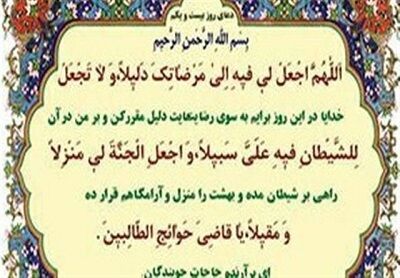 دعای روز بیست و یکم
بِسْمِ اللهِ الرَّحْمنِ الرَّحیمِ
اَللّٰهُمَّ اجْعَلْ لی فیهِ اِلیٰ مَرْضاتِکَ دَلیلاً،وَ لا تَجْعَلْ
خدایا در این روز برایم به سوی رضایتهایت دلیل مقررکن و بر من در آن
لِلشَّیْطانِ فیهِ عَلَیَّ سَبیلاً،وَ اجْعَلِ الْجَنَّةَ لی مَنْزِلاً
راهی بر شیطان مده و بهشت را منزل و آرامگاهم قرار ده
وَ مَقیلاً،یا قاضِیَ حَوائِجِ الطّالِبینَ .
ای برآرنده حاجات جویندگان.